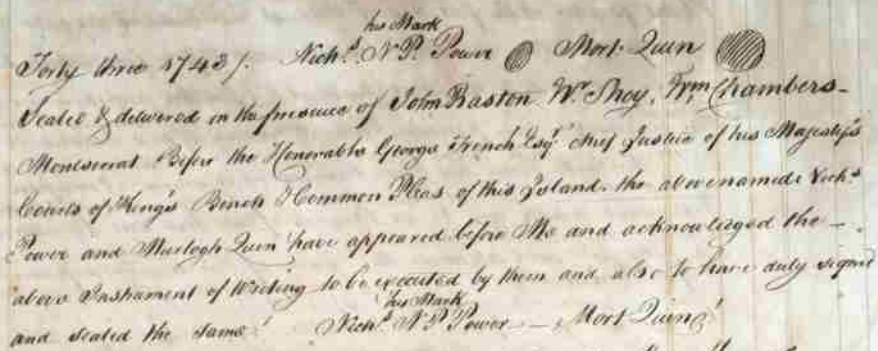 his Mark
Forty three 1743/. Nichs. N P. Power Mort. Quin
Sealed & delivered in the presence of John Baston, Wm. Shoy, Wm Chambers -
Montserrat Before the Honorable George French Esqr. Chief Justice of his Majesty's
Courts of King's Bench & Common Pleas of this Island. the abovenamed Nichs
Power and Murtogh Quin have appeared before Me and acknowledged the -
above Instrument of Writing to be executed by them and also to have duly signed
his Mark
and sealed the same. Nichs. N P Power - Mort Quin